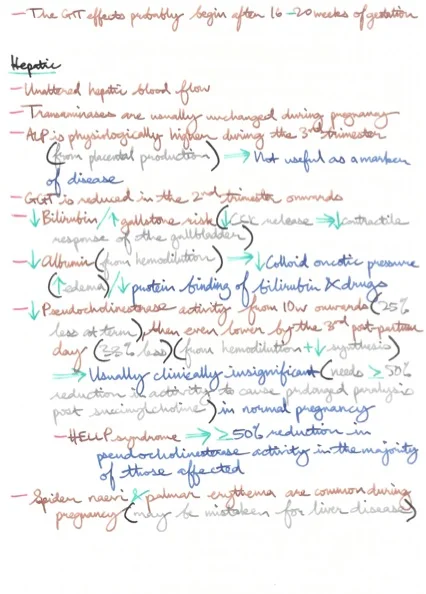 - The GIT effects probably begin after 16-20 weeks of gestation
Hepatic
- Unaltered hepatic blood flow
- Transaminases are usually unchanged during pregnancy
- ALP is physiologically higher during the 3rd trimester
(from placental production) → Not useful as a marker
of disease
- GGT is reduced in the 2nd trimester onwards
- ↓ Bilirubin / ↑ gallstone risk (↓ CCK release → ↓ contractile
response of the gallbladder)
- ↓ Albumin (from hemodilution) → ↓ Colloid oncotic pressure
(↑ edema) / ↓ protein binding of bilirubin & drugs
- ↓ Pseudocholinesterase activity from 10w onwards (25%
less at term), then even lower by the 3rd post-partum
day (33% less) (from hemodilution + ↓ synthesis)
→ Usually clinically insignificant (needs ≥ 50%
reduction in activity to cause prolonged paralysis
post succinylcholine) in normal pregnancy
- HELLP syndrome → ≥ 50% reduction in
pseudocholinesterase activity in the majority
of those affected
- Spider naevi & palmar erythema are common during
pregnancy (may be mistaken for liver disease)